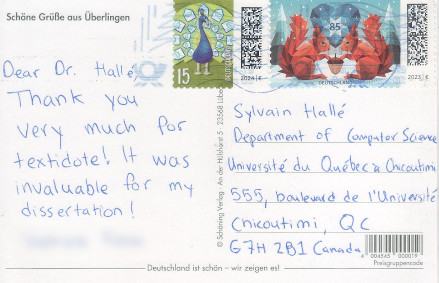 Schöne Grüße aus Überlingen
15
DEUTSCHLAND
2024 €
85
DEUTSCHLAND
2023 €
Dear Dr. Hallé
Thank you
very much for
textidote! It was
invaluable for my
dissertation!
© Schöning Verlag · An der Hülshorst 5 · 23568 Lübeck
Sylvain Hallé
Department of Computer Science
Université du Québec à Chicoutimi
555, boulevard de l'Université
Chicoutimi, QC
G7H 2B1 Canada
4 004545 000019
Preisgruppencode
Deutschland ist schön – wir zeigen es!